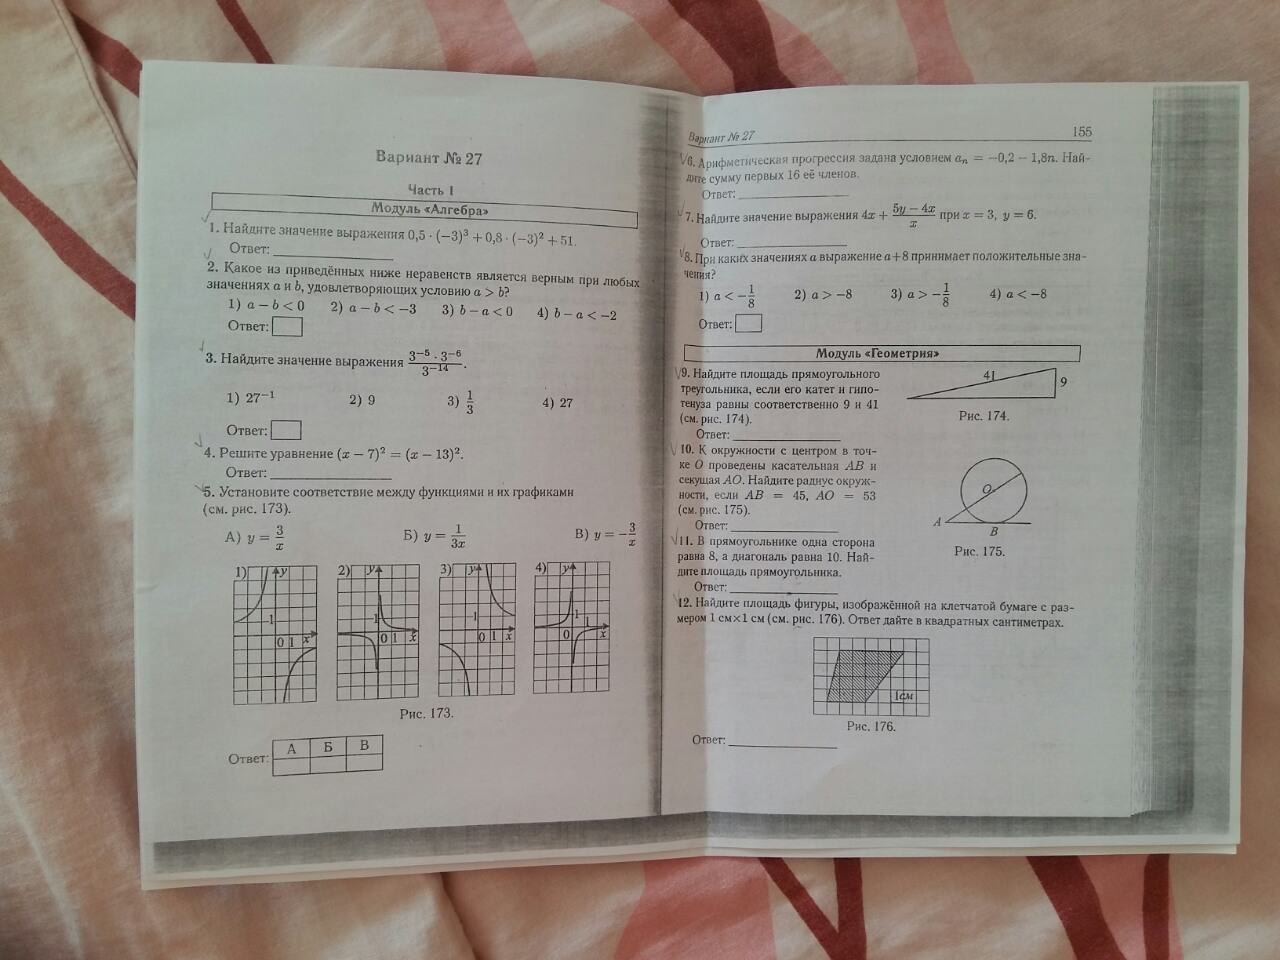 Вариант № 27
Часть 1
Модуль «Алгебра»
1. Найдите значение выражения 0,5 · (−3)³ + 0,8 · (−3)² + 51.
Ответ:
2. Какое из приведённых ниже неравенств является верным при любых
значениях a и b, удовлетворяющих условию a > b?
1) a − b < 0 2) a − b < −3 3) b − a < 0 4) b − a < −2
Ответ:
3. Найдите значение выражения (3⁻⁵ · 3⁻⁶)/3⁻¹⁴.
1) 27⁻¹ 2) 9 3) 1/3 4) 27
Ответ:
4. Решите уравнение (x − 7)² = (x − 13)².
Ответ:
5. Установите соответствие между функциями и их графиками
(см. рис. 173).
А) y = 3/x Б) y = 1/(3x) В) y = −3/x
1) y 1 0 1 x 2) y 1 0 1 x 3) y 1 0 1 x 4) y 1 0 1 x
Рис. 173.
А Б В
Ответ:
Вариант № 27 155
6. Арифметическая прогрессия задана условием aₙ = −0,2 − 1,8n. Най-
дите сумму первых 16 её членов.
Ответ:
7. Найдите значение выражения 4x + (5y − 4x)/x при x = 3, y = 6.
Ответ:
8. При каких значениях a выражение a+8 принимает положительные зна-
чения?
1) a < −1/8 2) a > −8 3) a > −1/8 4) a < −8
Ответ:
Модуль «Геометрия»
9. Найдите площадь прямоугольного
треугольника, если его катет и гипо-
тенуза равны соответственно 9 и 41
(см. рис. 174).
Ответ:
41 9
Рис. 174.
10. К окружности с центром в точ-
ке O проведены касательная AB и
секущая AO. Найдите радиус окруж-
ности, если AB = 45, AO = 53
(см. рис. 175).
Ответ:
O
A
B
Рис. 175.
11. В прямоугольнике одна сторона
равна 8, а диагональ равна 10. Най-
дите площадь прямоугольника.
Ответ:
12. Найдите площадь фигуры, изображённой на клетчатой бумаге с раз-
мером 1 см×1 см (см. рис. 176). Ответ дайте в квадратных сантиметрах.
1см
Рис. 176.
Ответ: